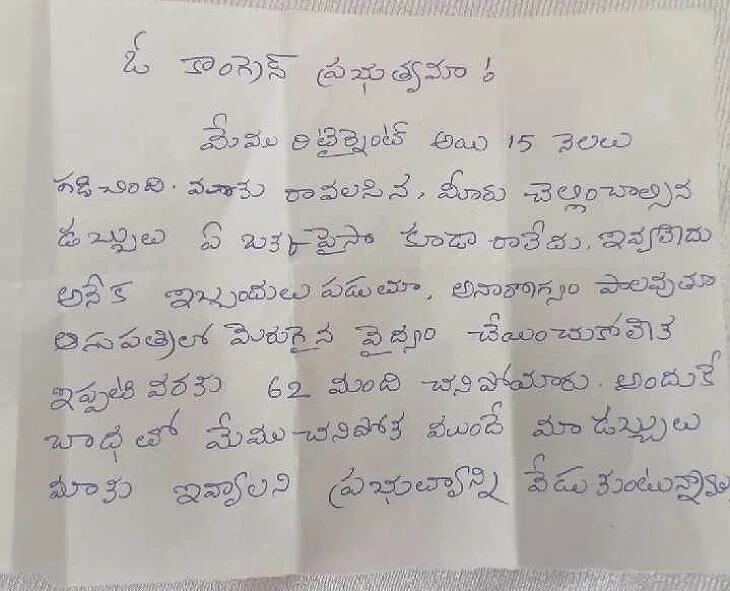 ఓ కాంగ్రెస్ ప్రభుత్వమా !
మేము రిటైర్మెంట్ అయి 15 నెలలు
గడిచింది. మాకు రావలసిన, మీరు చెల్లించాల్సిన
డబ్బులు ఏ ఒక్క పైసా కూడా రాలేదు, ఇవ్వలేదు
అనేక ఇబ్బందులు పడుతూ, అనారోగ్యం పాలవుతూ
ఆసుపత్రిలో మెరుగైన వైద్యం చేయించుకోలేక
ఇప్పటి వరకు 62 మంది చనిపోయారు. అందుకే
బాధతో మేము చనిపోక ముందే మా డబ్బులు
మాకు ఇవ్వాలని ప్రభుత్వాన్ని వేడుకుంటున్నాము